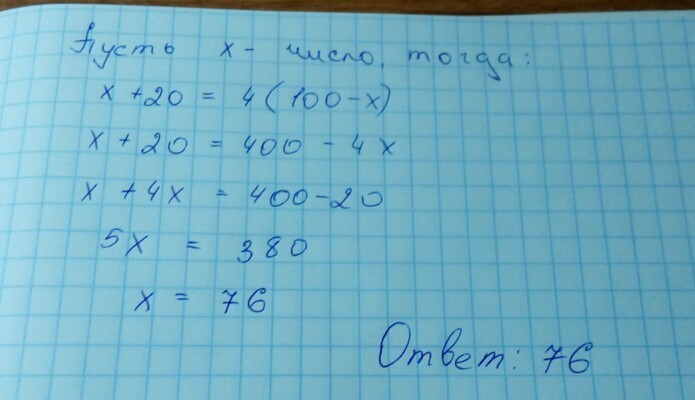 Пусть x - число, тогда:
x + 20 = 4 (100 - x)
x + 20 = 400 - 4x
x + 4x = 400 - 20
5x = 380
x = 76
Ответ: 76